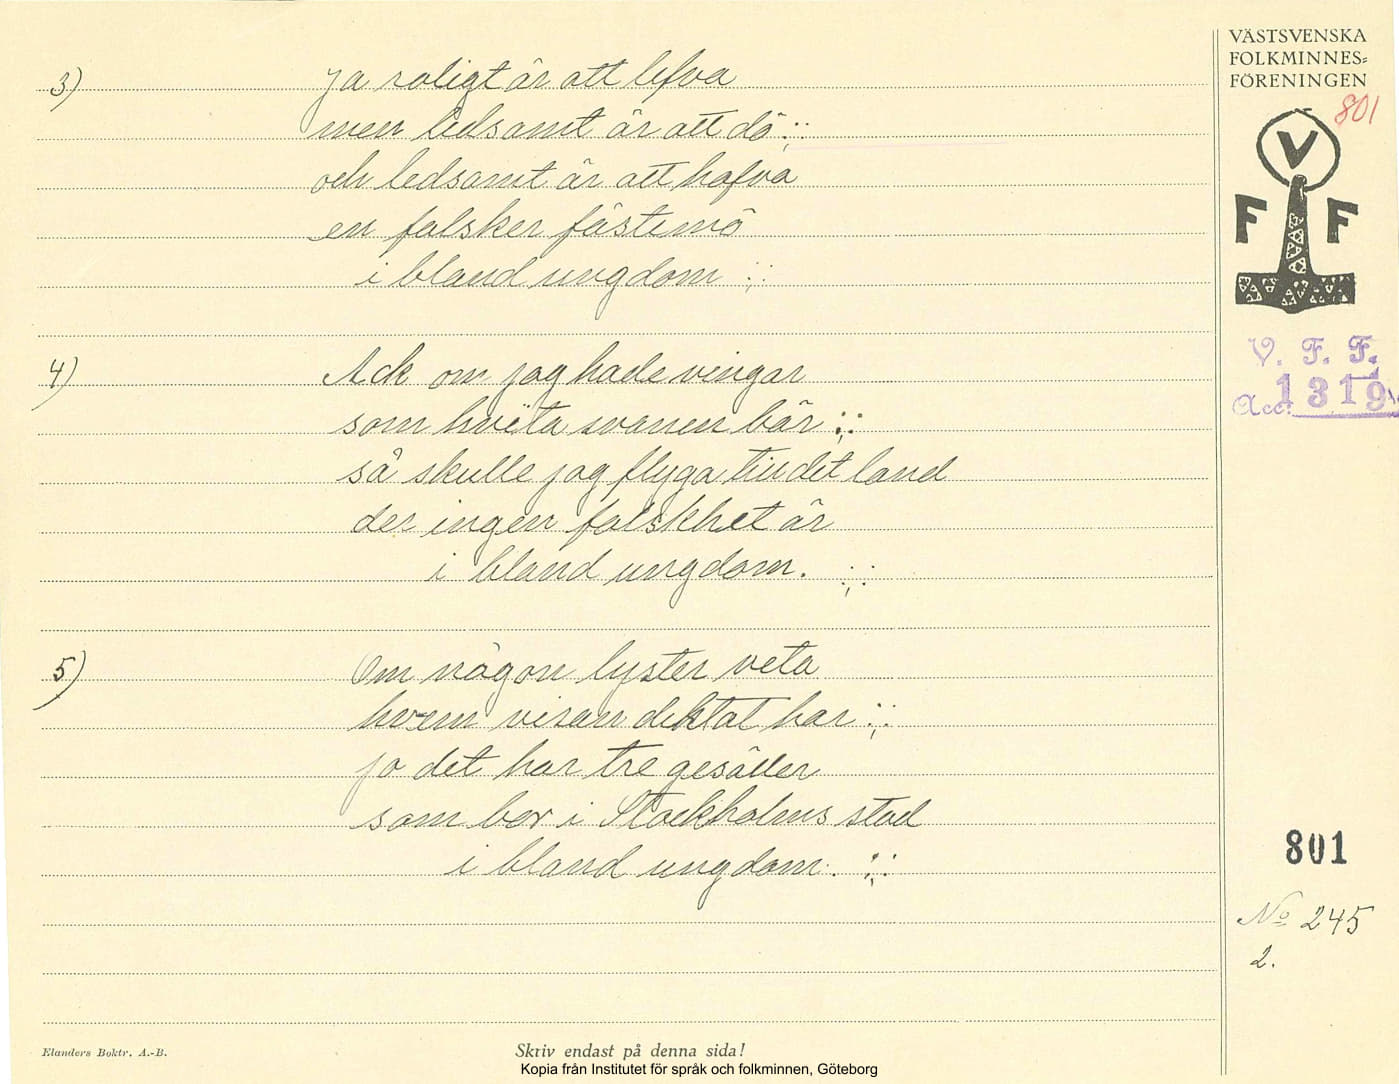 VÄSTSVENSKA
FOLKMINNES=
FÖRENINGEN
801
V
F F
V. F. F.
Acc. 1319
3) Ja roligt är att lefva
men ledsamt är att dö :;:
och ledsamt är att hafva
en falsker fästemö
i bland ungdom :;:
4) Ack om jag hade vingar
som hvita svanen bär :;:
så skulle jag flyga till det land
der ingen falskhet är
i bland ungdom. :;:
5) Om någon lyster veta
hvem visan diktat har :;:
jo det har tre gesäller
som bor i Stockholms stad
i bland ungdom. :;:
801
No 245
2.
Elanders Boktr. A.-B.
Skriv endast på denna sida!
Kopia från Institutet för språk och folkminnen, Göteborg